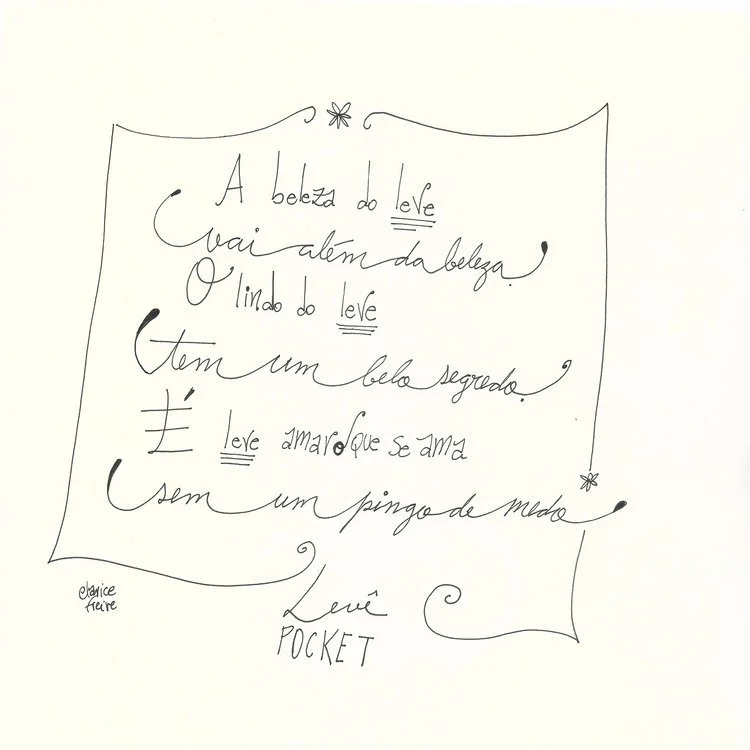 A beleza do leve
vai além da beleza.
O lindo do leve
tem um belo segredo.
É leve amar o que se ama
sem um pingo de medo
clarice
freire
Levê
POCKET